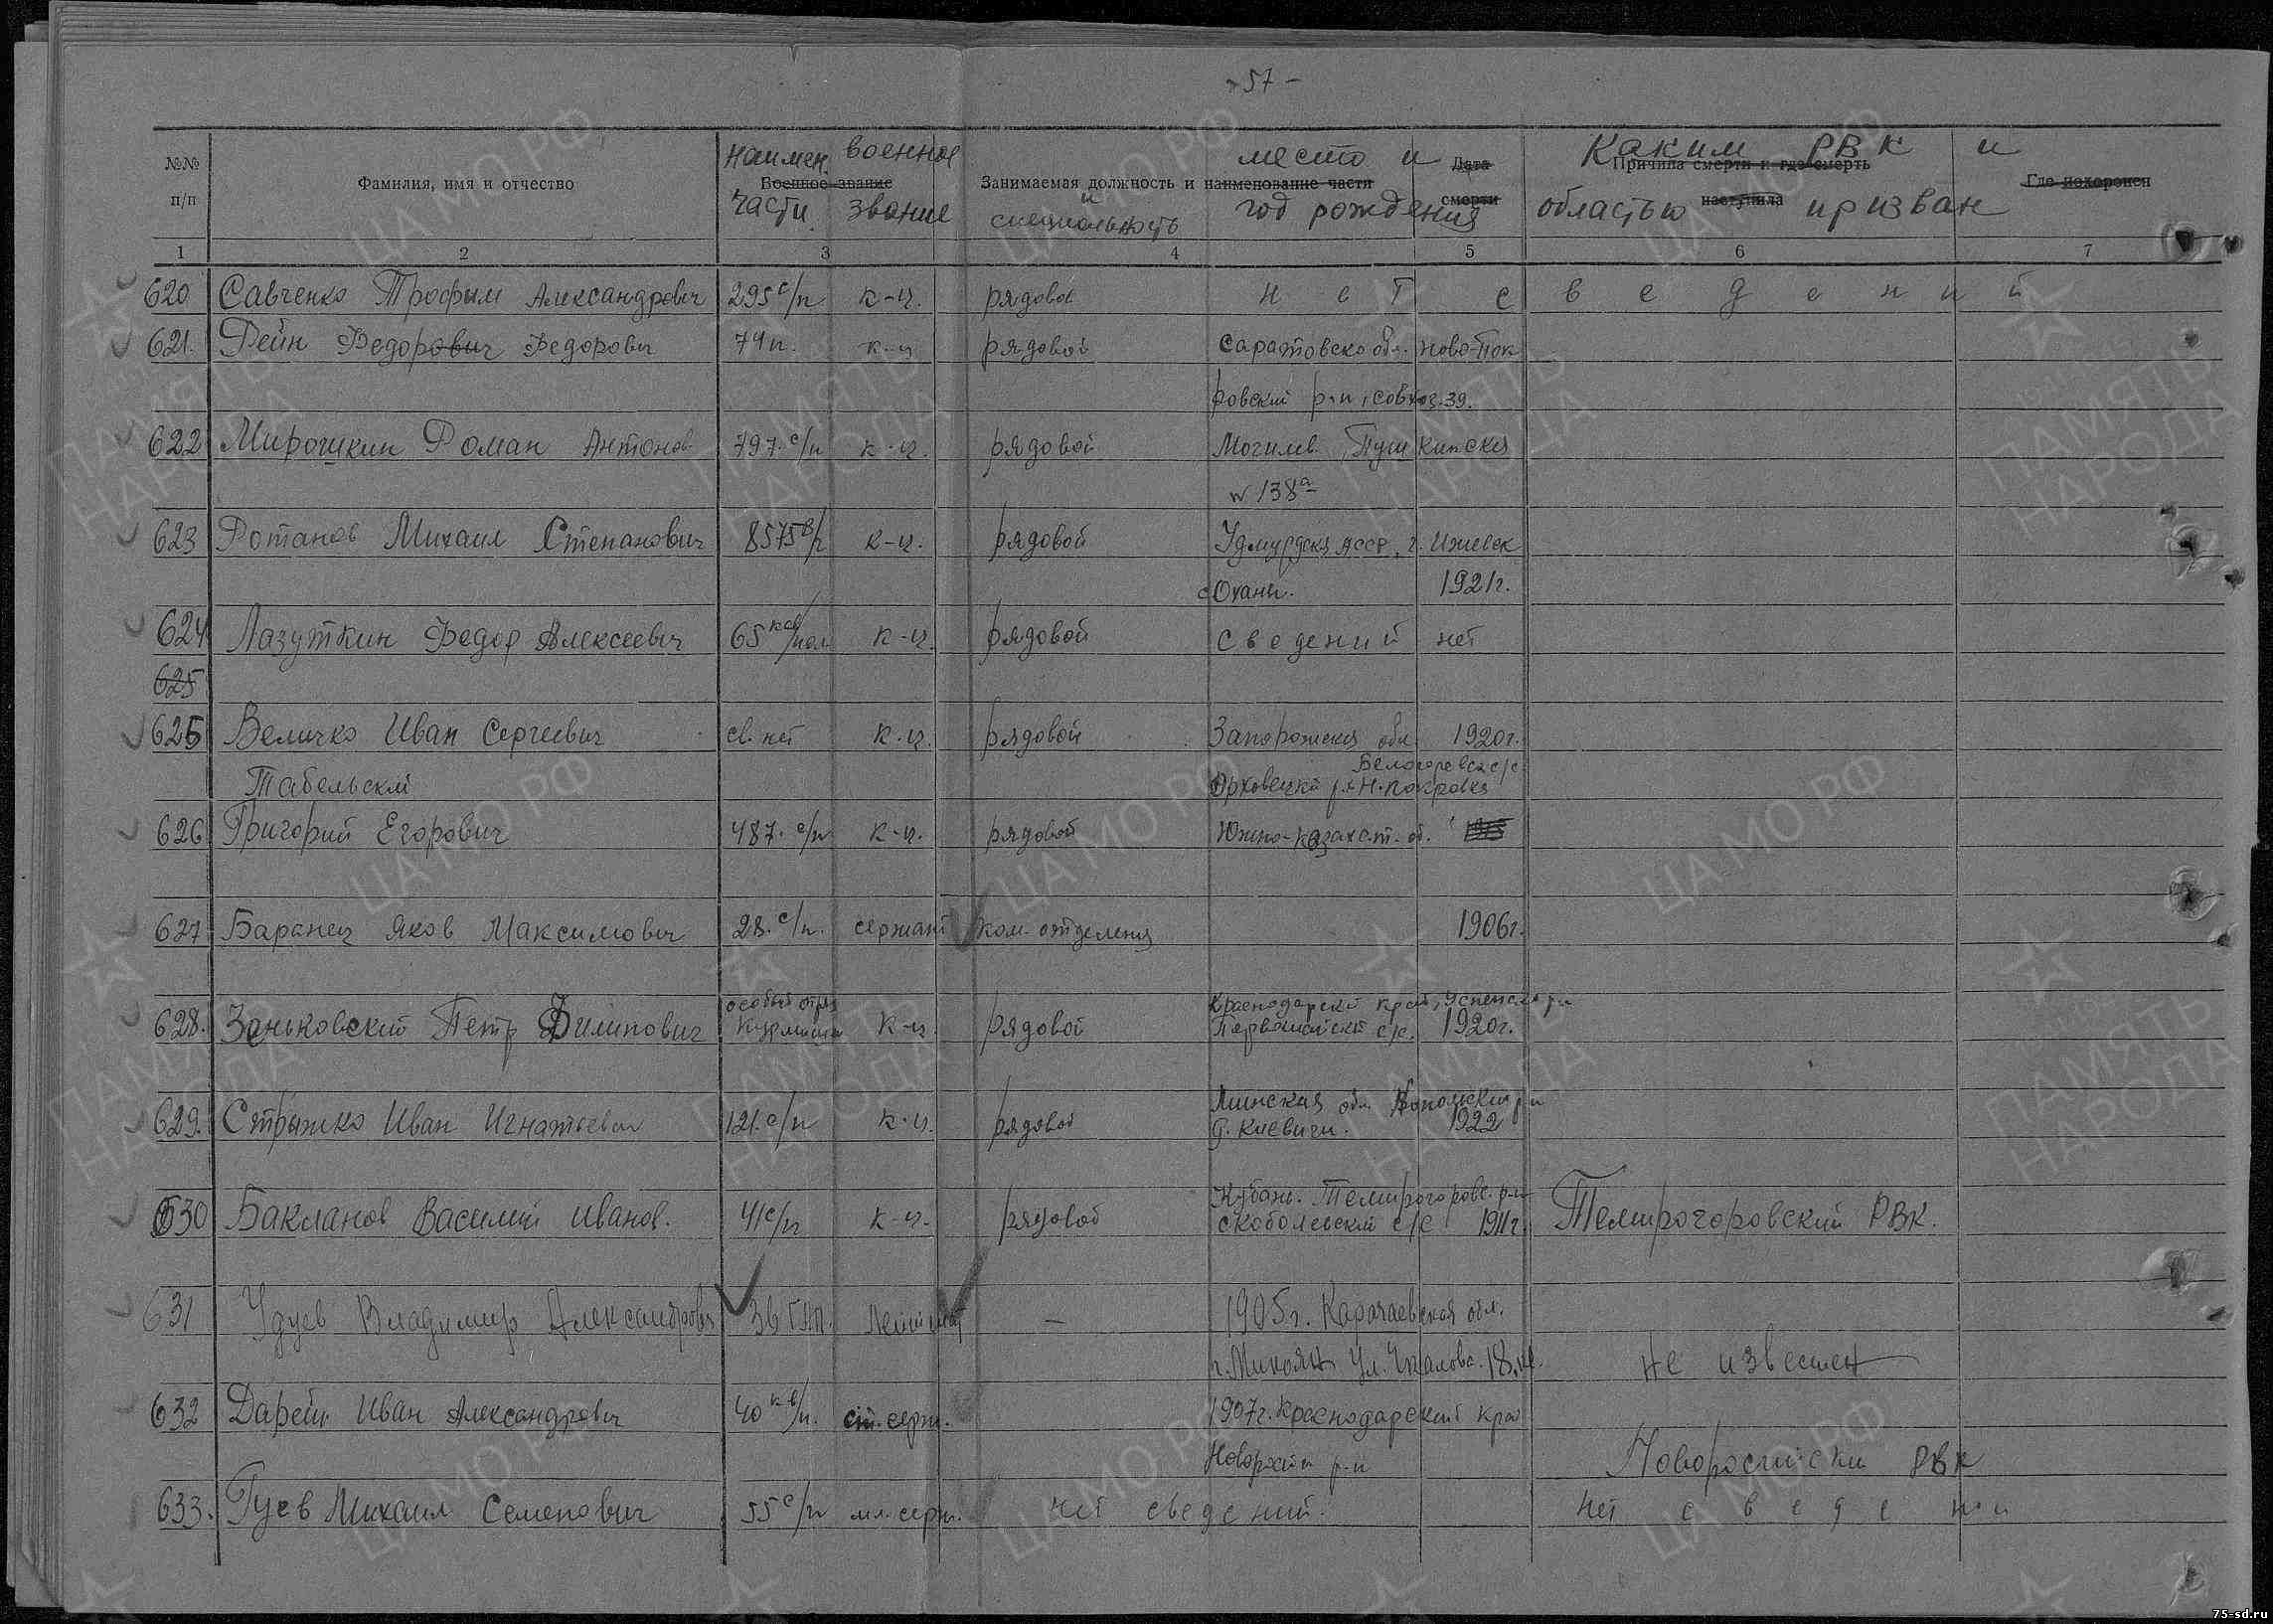 - 57 -
№№ п/п
Фамилия, имя и отчество
Наимен. части
военное звание
Военное звание
Занимаемая должность и наименование части
и специальность
место и год рождения
Дата смерти
Каким РВК и областью призван
Причина смерти и где смерть наступила
Где похоронен
1 2 3 4 5 6 7
620 Савченко Трофим Александрович 295 с/п к-ц. рядовой нет сведений
621. Рейн Федорович Федорович 74 п. к-ц рядовой Саратовско обл. Ново-Пок
ровский р-н, совхоз. 39.
622 Мирошкин Роман Антонов 797. с/п к-ц. рядовой Могилев. Пушкинская
№ 138а
623 Ротанов Михаил Степанович 8575 к-ц. рядовой Удмурдская АССР, г. Ижевск
с Охани. 1921г.
624 Лазуткин Федор Алексеевич 65 к-ц. рядовой сведений нет
625
625 Величко Иван Сергеевич св. нет к-ц. рядовой Запорожская обл. 1920г.
Н. Покровка
Табельский
626 Григорий Егорович 487. с/п к-ц. рядовой Южно-казахст. об.
627 Баранец Яков Максимович 28. с/п. сержант ком. отделения 1906г.
628. Заньковский Петр Филипович особый отряд к-ц. рядовой Краснодарский край, Успенский р-н
Первомайский с/с. 1920г.
629. Стрыжко Иван Игнатьевич 121. с/п к-ц. рядовой Минская обл. Копольский р-н
д. Киевичи. 1922
630 Бакланов Василий Иванов. 41 с/п к-ц. рядовой Кубань. Темиргоровс. р-н
Скоболевский с/с 1911г. Темиргоровский РВК.
631 Удуев Владимир Александрович 36 Лейтенат — 1905г. Карачаевская обл.
г. Микоян Ул. Чкалова. 18. не известен
632 Дарейн Иван Александрович 40 кв/п. ст. серж. 1907г. Краснодарский край
р-н Новоросийски РВК
633. Гуев Михаил Семенович 55 с/п мл. серж. нет сведений. нет сведений
ЦА МО РФ
ПАМЯТЬ НАРОДА
75-sd.ru